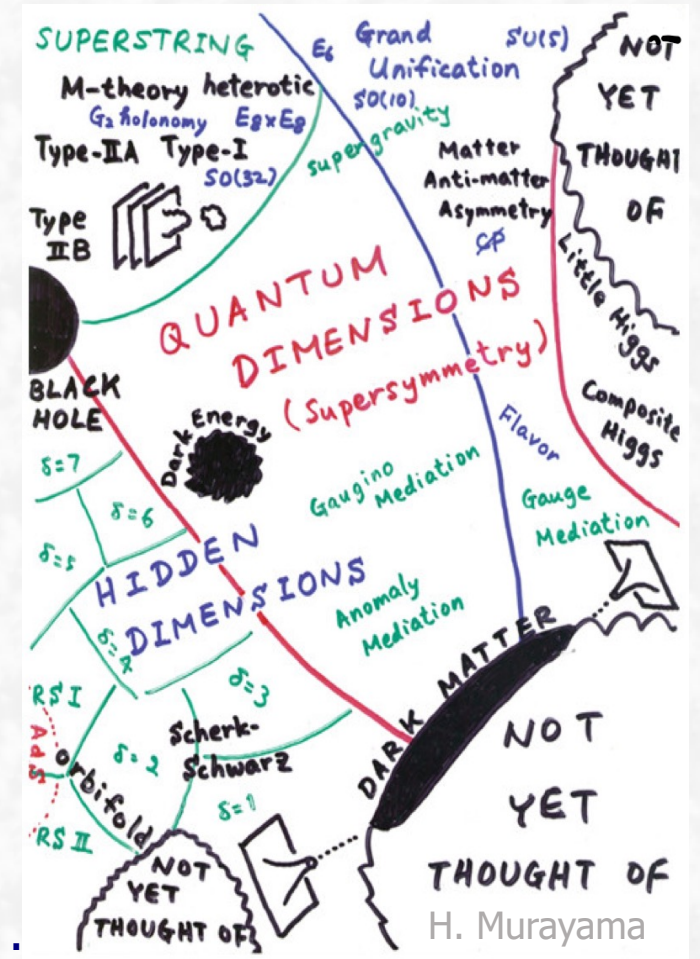 SUPERSTRING
M-theory heterotic
G₂ holonomy E₈xE₈
Type-IIA Type-I
SO(32)
Type
IIB
E₆ Grand SU(5)
Unification
SO(10)
supergravity
Matter
Anti-matter
Asymmetry
CP
NOT
YET
THOUGHT
OF
Little Higgs
Composite
Higgs
QUANTUM
DIMENSIONS
(Supersymmetry)
BLACK
HOLE
Dark Energy
Flavor
Gaugino
Mediation
Gauge
Mediation
Anomaly
Mediation
δ=7
δ=6
δ=5
HIDDEN
DIMENSIONS
δ=4
δ=3
RS I
AdS
orbifold
δ=2
Scherk-
Schwarz
δ=1
RS II
NOT
YET
THOUGHT OF
DARK MATTER
NOT
YET
THOUGHT OF
H. Murayama